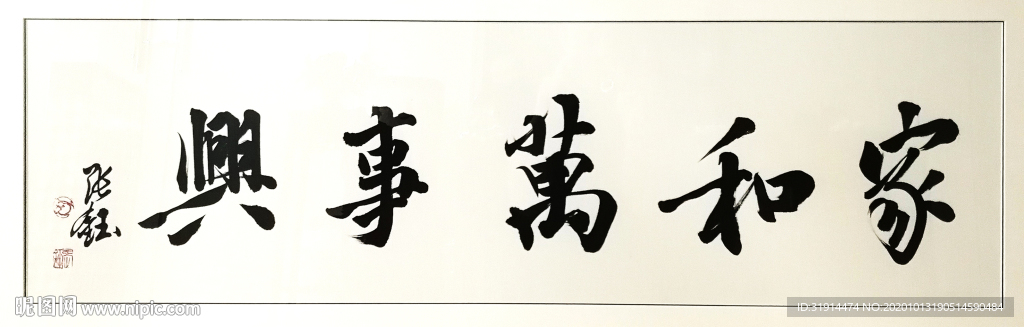 家和萬事興
張鈺
昵图网 www.nipic.com
ID:31914474 NO:20201013190514590484